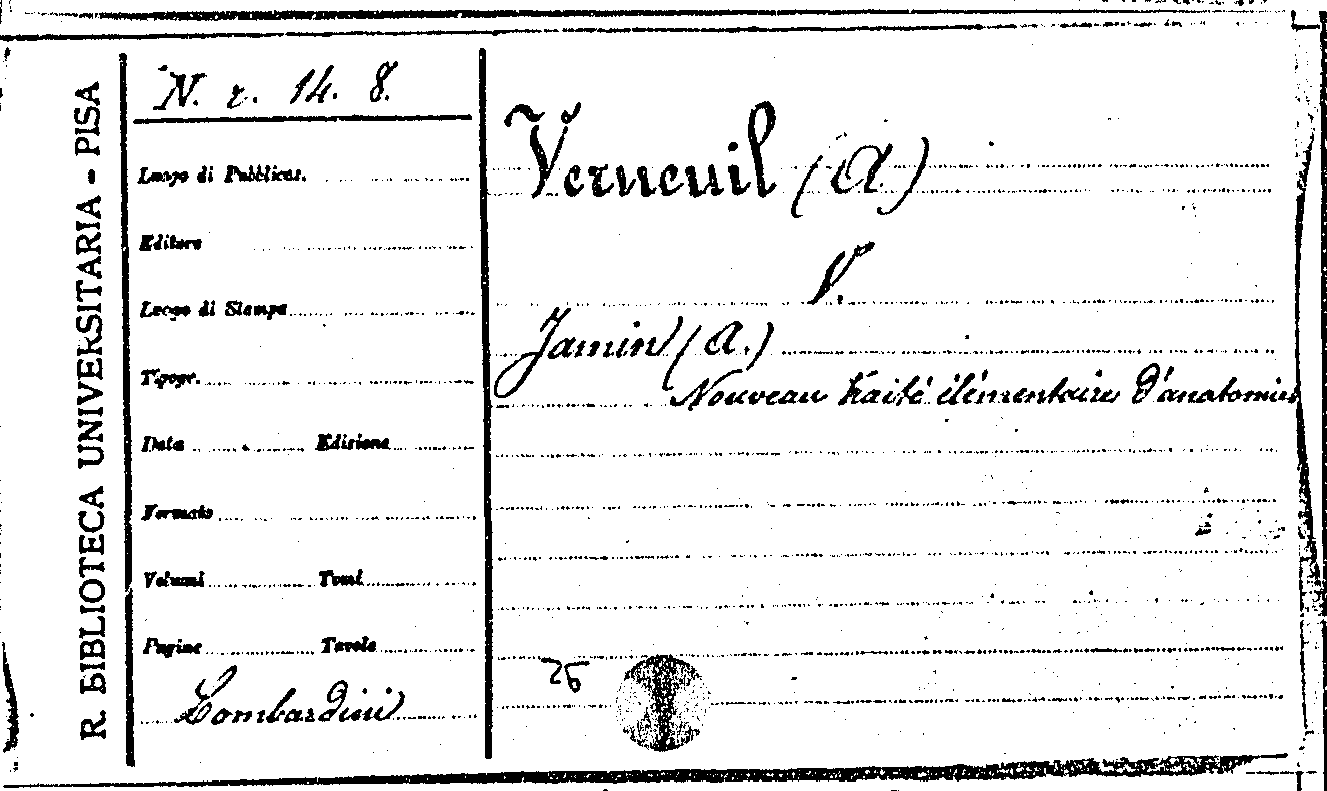 R. BIBLIOTECA UNIVERSITARIA - PISA
N. r. 14. 8.
Luogo di Pubblicaz.
Editore
Luogo di Stampa
Tipogr.
Data Edizione
Formato
Volumi Tomi
Pagine Tavole
Lombardini
Verneuil (A)
V.
Jamin (A.)
Nouveau traité élémentaire d'anatomie
26